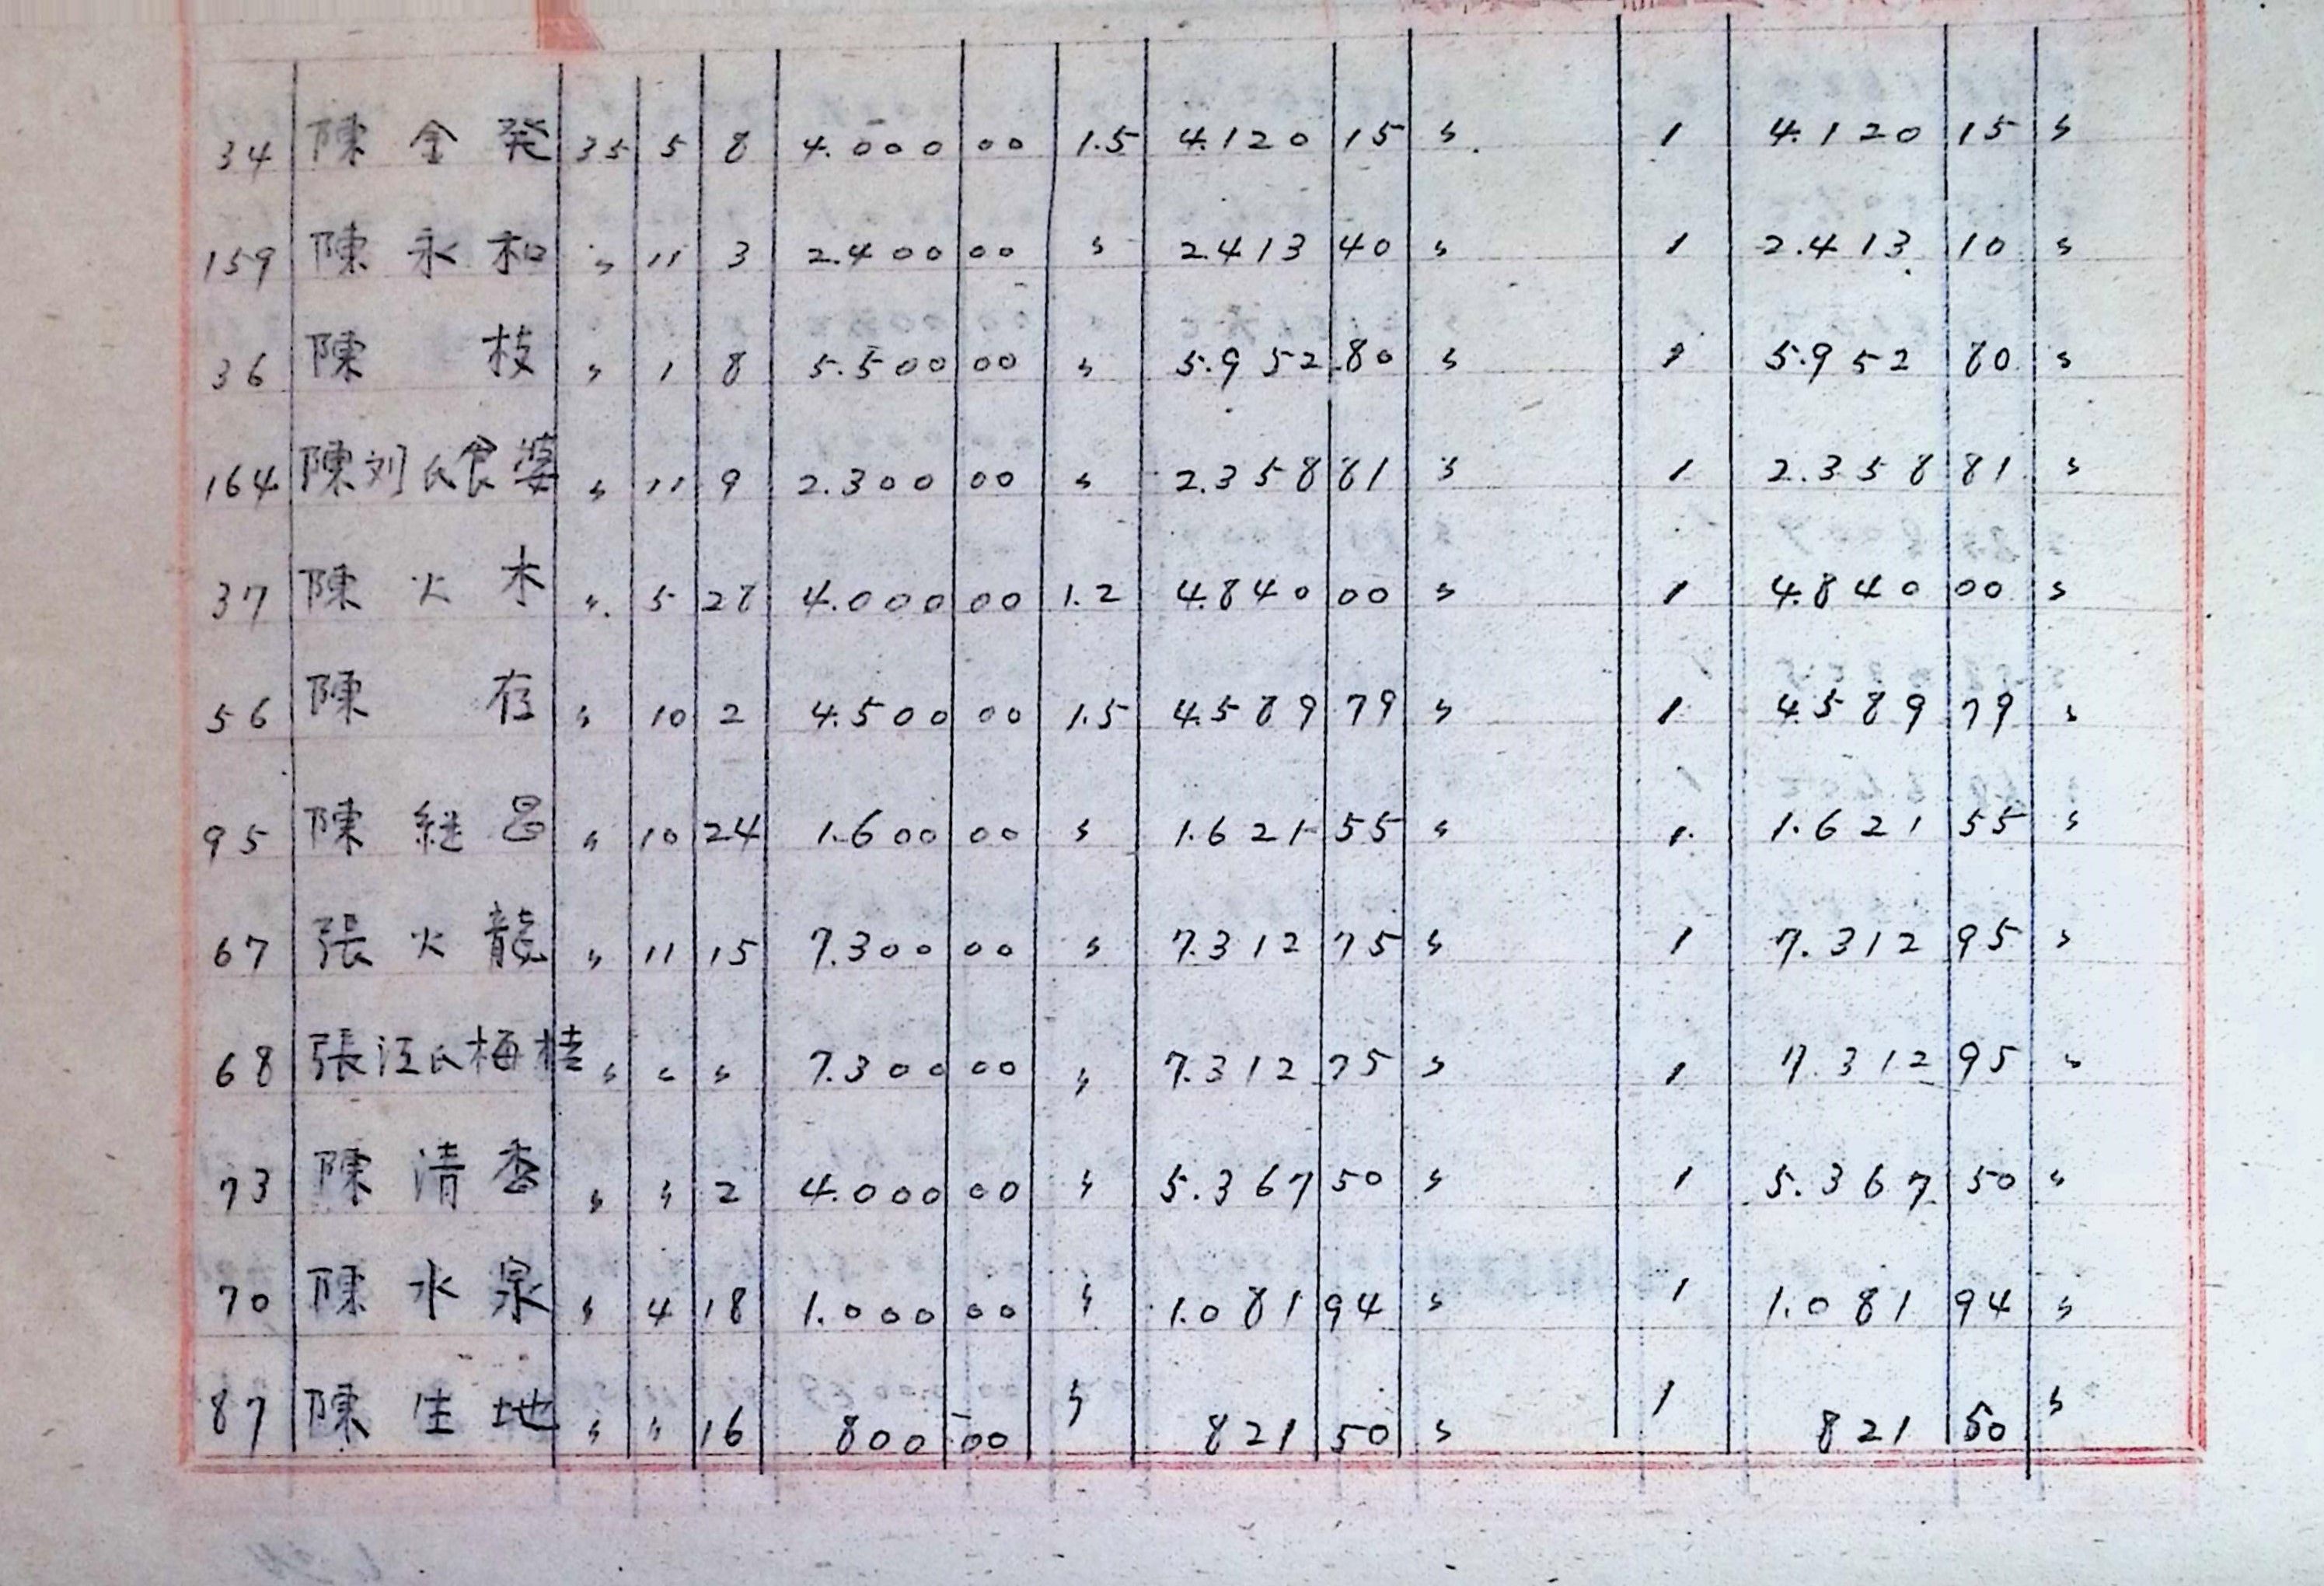 34 陳金発 35 5 8 4.000 00 1.5 4.120 15 〃 1 4.120 15 〃
159 陳永和 〃 11 3 2.400 00 〃 2.413 40 〃 1 2.413 10 〃
36 陳枝 〃 1 8 5.500 00 〃 5.952 80 〃 1 5.952 80 〃
164 陳刘氏食婆 〃 11 9 2.300 00 〃 2.358 81 〃 1 2.358 81 〃
37 陳火木 〃 5 28 4.000 00 1.2 4.840 00 〃 1 4.840 00 〃
56 陳存 〃 10 2 4.500 00 1.5 4.589 79 〃 1 4.589 79 〃
95 陳継昌 〃 10 24 1.600 00 〃 1.621 55 〃 1 1.621 55 〃
67 張火龍 〃 11 15 7.300 00 〃 7.312 75 〃 1 7.312 95 〃
68 張江氏梅桂 〃 〃 〃 7.300 00 〃 7.312 75 〃 1 7.312 95 〃
73 陳清 〃 〃 2 4.000 00 〃 5.367 50 〃 1 5.367 50 〃
70 陳水泉 〃 4 18 1.000 00 〃 1.081 94 〃 1 1.081 94 〃
87 陳生地 〃 〃 16 800 00 〃 821 50 〃 1 821 50 〃